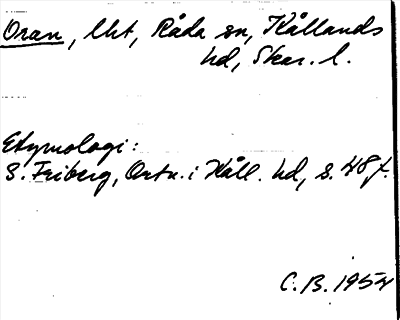 Oran, lht, Råda sn, Kållands
hd, Skar. l.
Etymologi:
S. Friberg, Ortn. i Kåll. hd, s. 48 f.
C.B. 1954